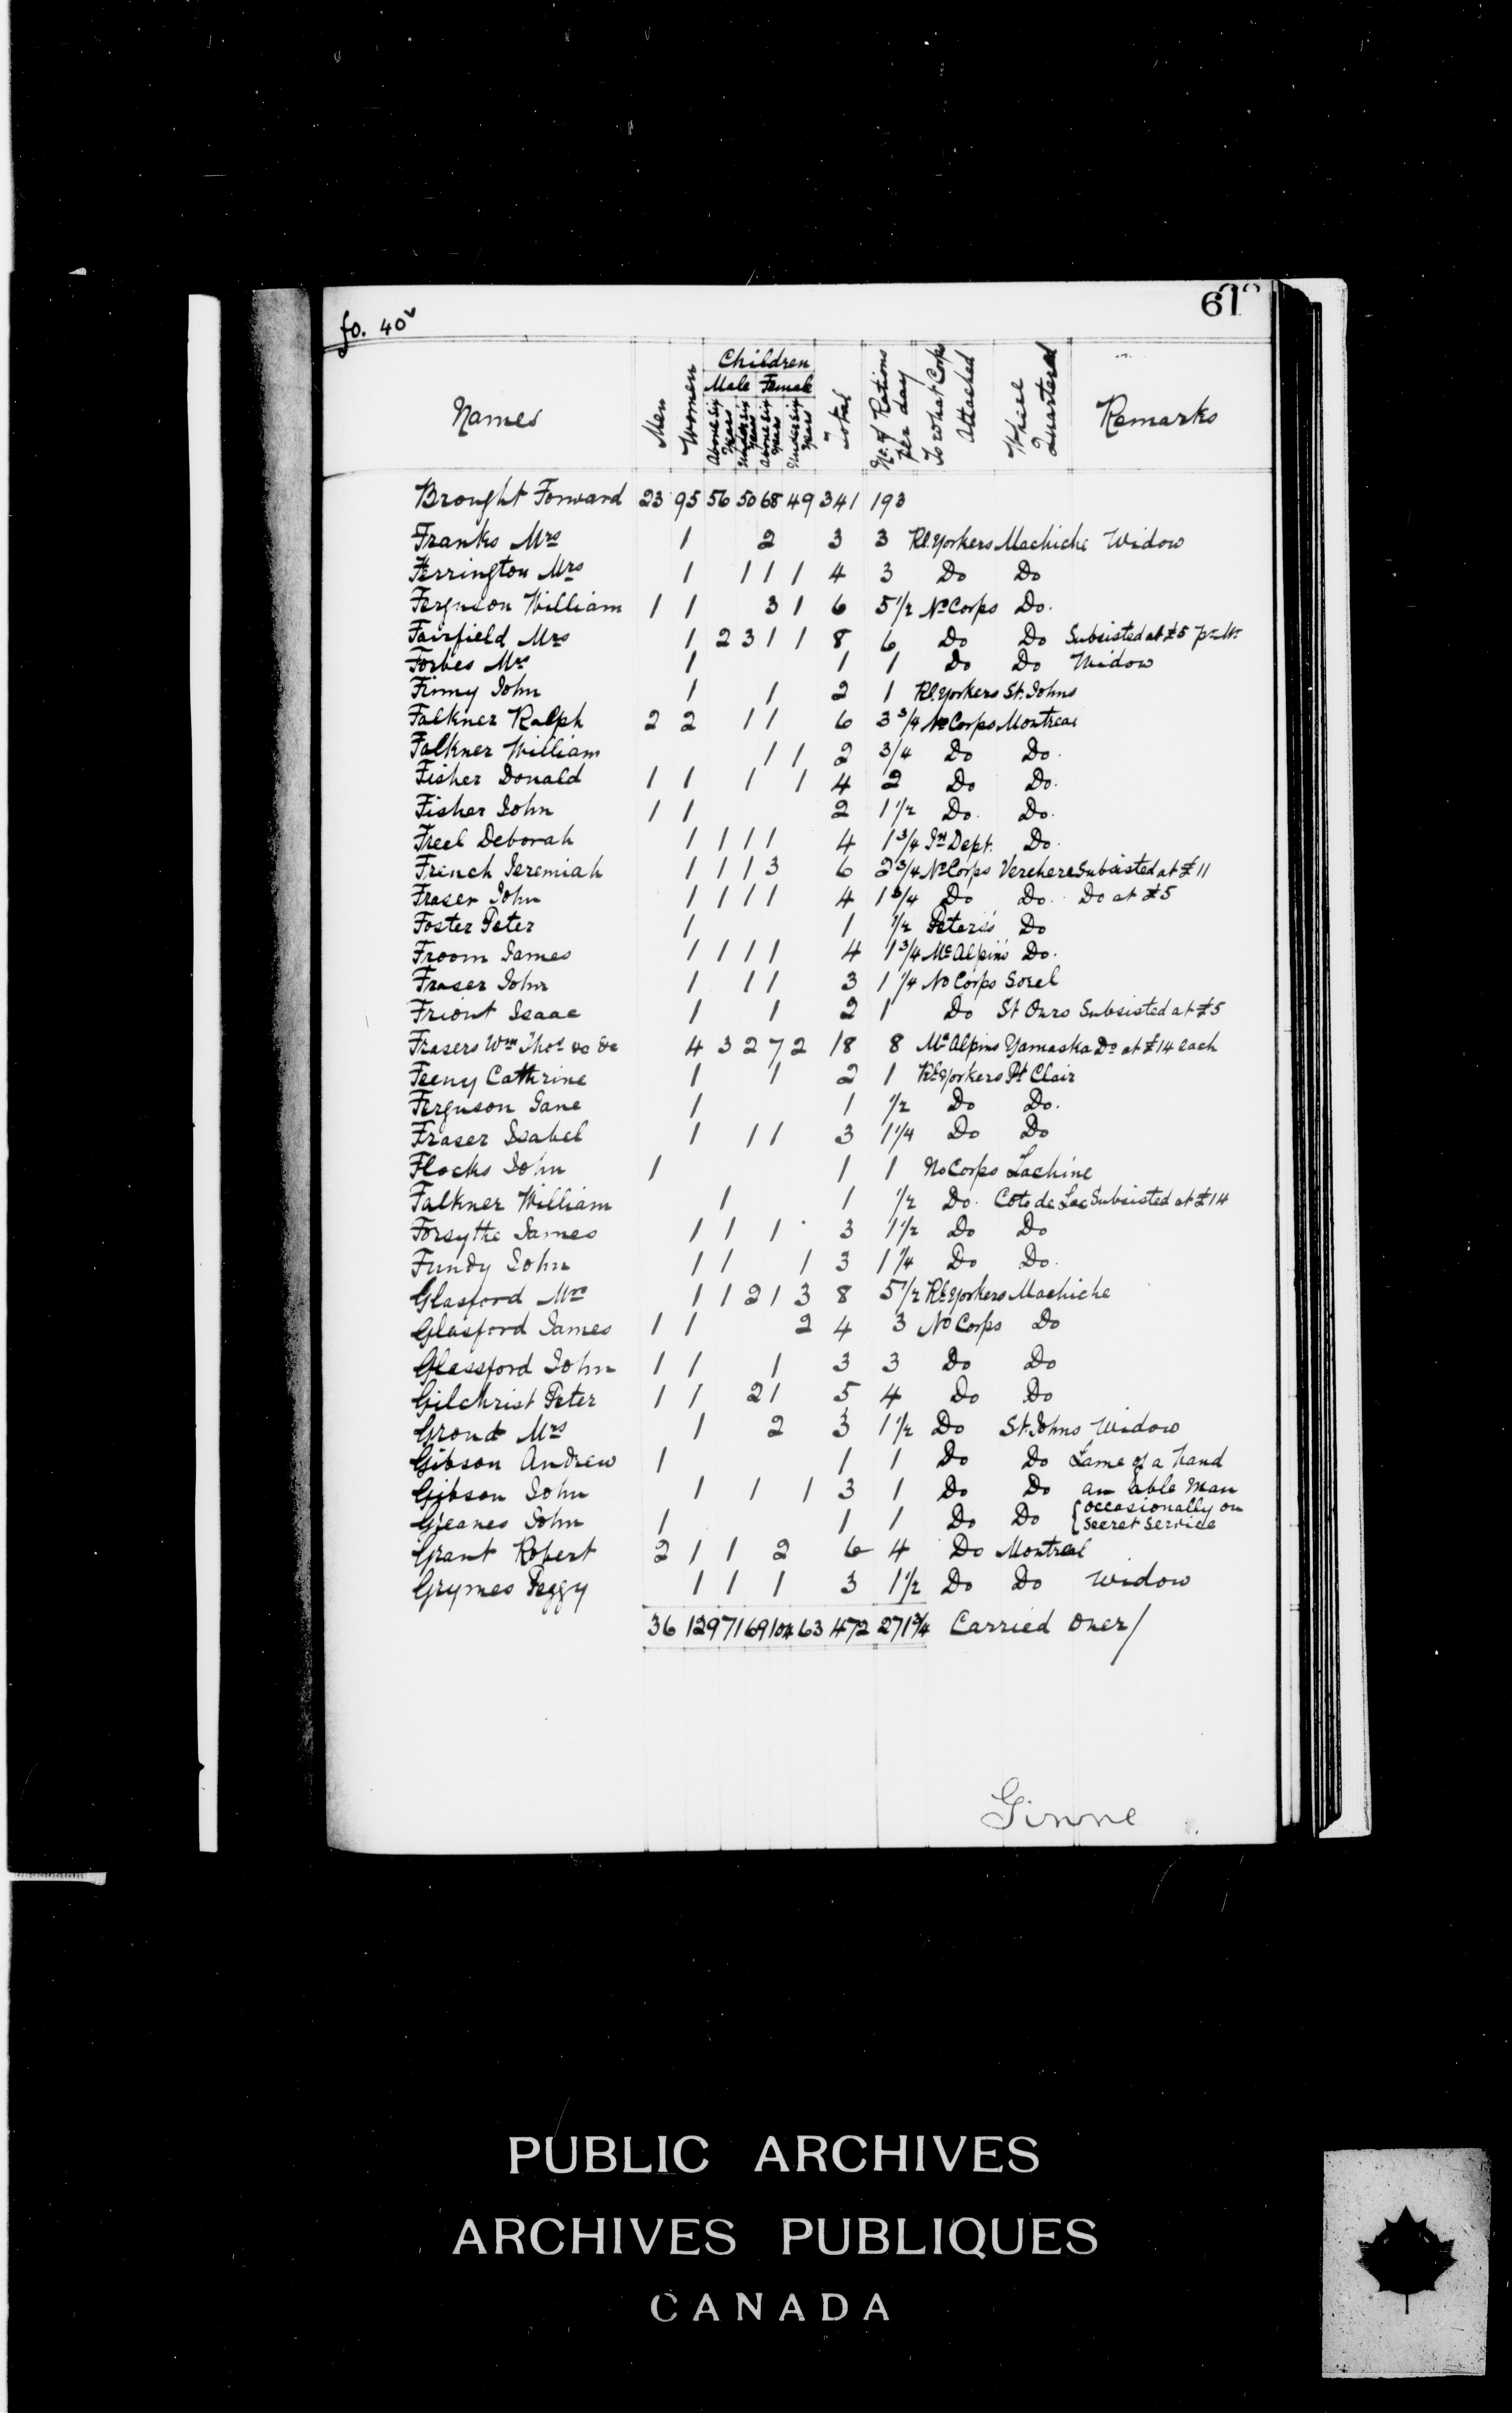 fo. 40v
61
Names Men Women Children Male Female Above six Years Under six Years Above six Years Under six Years Total No. of Rations per day To what Corps Attached Where Quartered Remarks
Brought Forward 23 95 56 50 68 49 341 193
Franks Mrs 1 2 3 3 Rl. Yorkers Machiche Widow
Ferrington Mrs 1 1 1 1 4 3 Do Do
Ferguson William 1 1 3 1 6 5 1/2 No Corps Do.
Fairfield Mrs 1 2 3 1 1 8 6 Do Do Subsisted at £5 pr
Forbes Mrs 1 1 1 Do Do Widow
Finny John 1 1 2 1 Rl. Yorkers St. Johns
Falkner Ralph 2 2 1 1 6 3 3/4 No Corps Montreal
Falkner William 1 1 2 3/4 Do Do.
Fisher Donald 1 1 1 1 4 2 Do Do.
Fisher John 1 1 2 1 1/2 Do. Do.
Freel Deborah 1 1 1 1 4 1 3/4 In Dept. Do.
French Jeremiah 1 1 1 3 6 2 3/4 No Corps Verchere Subsisted at £11
Fraser John 1 1 1 1 4 1 3/4 Do Do. Do at £5
Foster Peter 1 1 1/2 Peters's Do
Froom James 1 1 1 1 4 1 3/4 McAlpin's Do.
Fraser John 1 1 1 3 1 1/4 No Corps Sorel
Friont Isaac 1 1 2 1 Do St Ours Subsisted at £5
Frasers Wm Thos &c &c 4 3 2 7 2 18 8 McAlpins Yamaska Do at £14 each
Feeny Cathrine 1 1 2 1 Rl. Yorkers Pt Clair
Ferguson Jane 1 1 1/2 Do Do.
Fraser Isabel 1 1 1 3 1 1/4 Do Do
Flocks John 1 1 1 No Corps Lachine
Falkner William 1 1 1/2 Do. Coto de Lac Subsisted at £14
Forsythe James 1 1 1 3 1 1/2 Do Do
Fundy John 1 1 1 3 1 1/4 Do Do.
Glasford Mrs 1 1 2 1 3 8 5 1/2 Rl. Yorkers Machiche
Glasford James 1 1 2 4 3 No Corps Do
Glassford John 1 1 1 3 3 Do Do
Gilchrist Peter 1 1 2 1 5 4 Do Do
Grond Mrs 1 2 3 1 1/2 Do St. Johns Widow
Gibson Andrew 1 1 1 Do Do Lame of a hand
Gibson John 1 1 1 3 1 Do Do an able Man
Gjeanes John 1 1 1 Do Do {occasionally on
Secret Service
Grant Robert 2 1 1 2 6 4 Do Montreal
Grymes Peggy 1 1 1 3 1 1/2 Do Do Widow
36 129 71 69 104 63 472 271 3/4 Carried over/
Ginne
PUBLIC ARCHIVES
ARCHIVES PUBLIQUES
CANADA